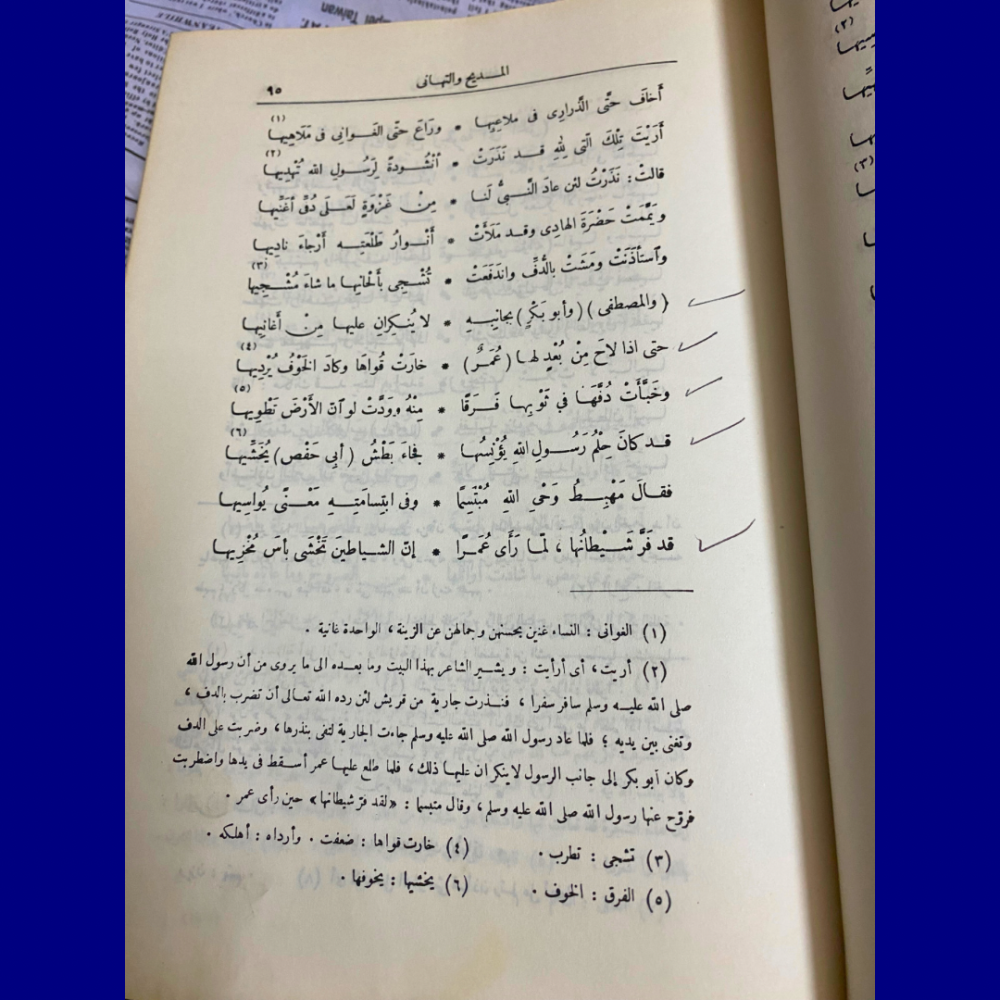 المــديح والتهـانى
٩٥
أَخافَ حتَّى الذَّرارِى فى ملاعِبِها * ورَاعَ حتَّى الغَـوانِي فى مَلَاهِيها (١)
أَرَيْتَ تِلْكَ الَّتى لِلّٰهِ قـد نَذَرَتْ * أُنْشُـودةً لِرَسُـولِ الله تُهْدِيها (٢)
قالتْ: نَذَرْتُ لئن عادَ النَّبِيُّ لَنا * مِنْ غَزْوَةٍ لَعَلَى دُفٍّ أُغَنِّيها
ويَمَّمَتْ حَضْرَةَ الهادِى وقـد مَلَأَتْ * أَنْـوارُ طَلْعَتِـهِ أَرْجاءَ نادِيها
وٱستَأذَنَتْ ومَشَتْ بالدُّفِّ واندَفَعَتْ * تُشْجِى بأَلْحانِها ما شاءَ مُشْجِيها (٣)
(والمصطفى) (وأبو بَكْرٍ) بجانِبِـهِ * لا يُنكِرانِ عليها مِنْ أَغانِيها
حتى اذا لاحَ مِنْ بُعْدٍ لهـا (عُمَـرٌ) * خارَتْ قُواهَا وكادَ الخَوْفُ يُرْدِيها (٤)
وخَبَّأَتْ دُفَّهَا فى ثَوْبِها فَـرَقًا * مِنْهُ ووَدَّتْ لو آنّ الأَرْضَ تَطْوِيها (٥)
قـد كانَ حِلْمُ رَسُـولِ اللهِ يُؤْنِسُها * فجاءَ بَطْشُ (أبِى حَفْصٍ) يُخَشِّيها (٦)
فقالَ مَهْبِـطُ وَحْىِ اللهِ مُبْتَسِمًا * وفى ابتِسامَتِـهِ مَعْـنًى يُواسِيها
قد فَرَّ شَـيْطانُها، لَمّـا رَأَى عُمَـرًا * إنّ الشياطينَ تَخْشَى بأسَ مُخْزِيها
(١) الغوانى : النساء غنين بحسنهن وجمالهن عن الزينة، الواحدة غانية .
(٢) أريت، أى أرأيت : ويشير الشاعر بهذا البيت وما بعده الى ما يروى من أن رسول الله
صلى الله عليه وسلم سافر سفرا، فنذرت جارية من قريش لئن رده الله تعالى أن تضرب بالدف،
وتغنى بين يديه ؛ فلما عاد رسول الله صلى الله عليه وسلم جاءت الجارية لتفى بنذرها، وضربت على الدف
وكان أبو بكر إلى جانب الرسول لا ينكران عليها ذلك، فلما طلع عليها عمر أسقط فى يدها واضطربت
فروّح عنها رسول الله صلى الله عليه وسلم، وقال متبسما : «لقد فرّ شيطانها» حين رأى عمر .
(٣) تشجى : تطرب . (٤) خارت قواها : ضعفت . وأرداه : أهلكه .
(٥) الفرق : الخوف . (٦) يخشيها : يخوفها .